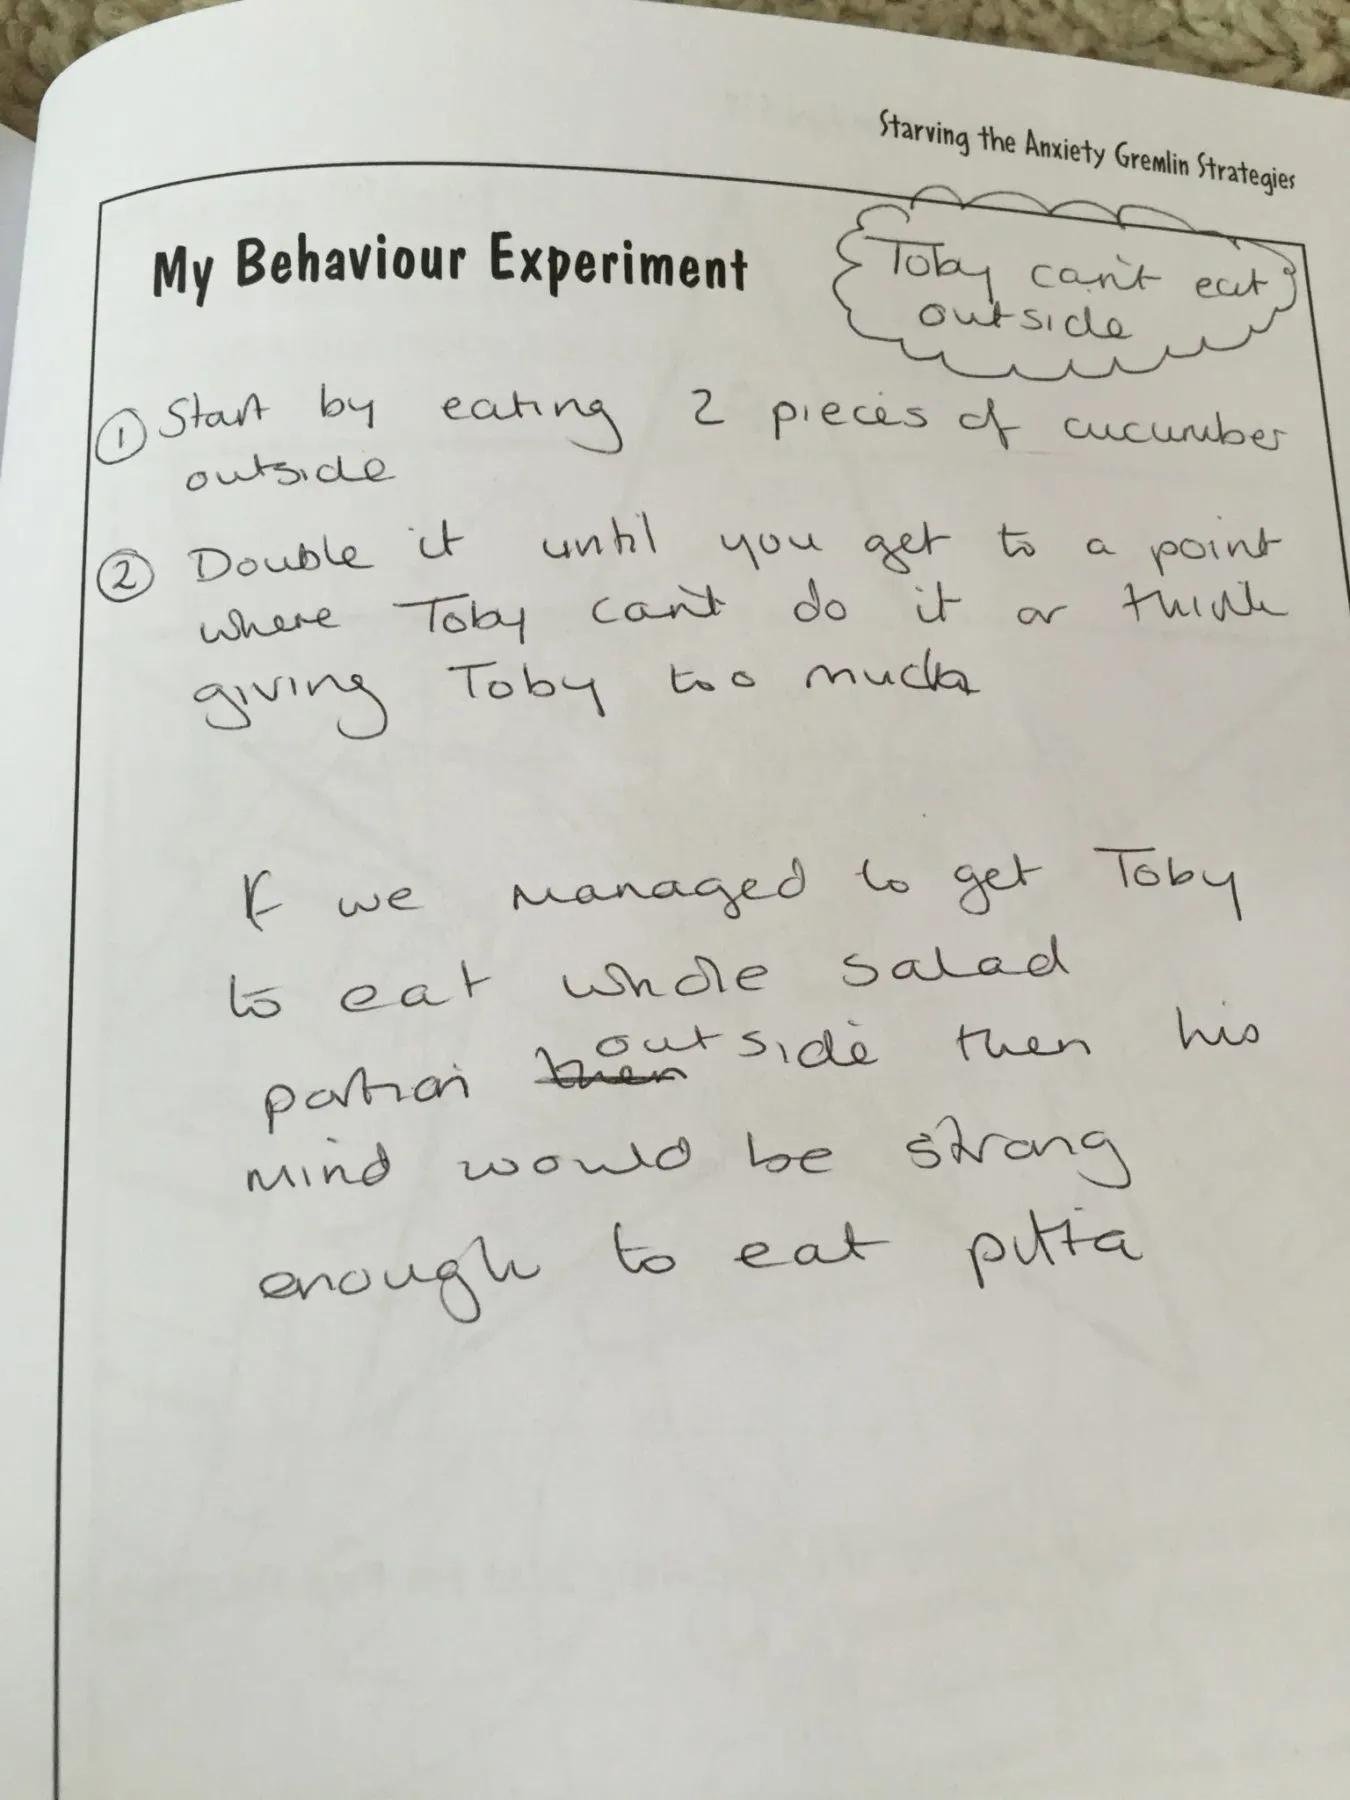 Starving the Anxiety Gremlin Strategies
My Behaviour Experiment
Toby can't eat
outside
1 Start by eating 2 pieces of cucumber
outside
2 Double it until you get to a point
where Toby can't do it or think
giving Toby too much
If we managed to get Toby
to eat whole salad
portion then outside then his
mind would be strong
enough to eat pitta